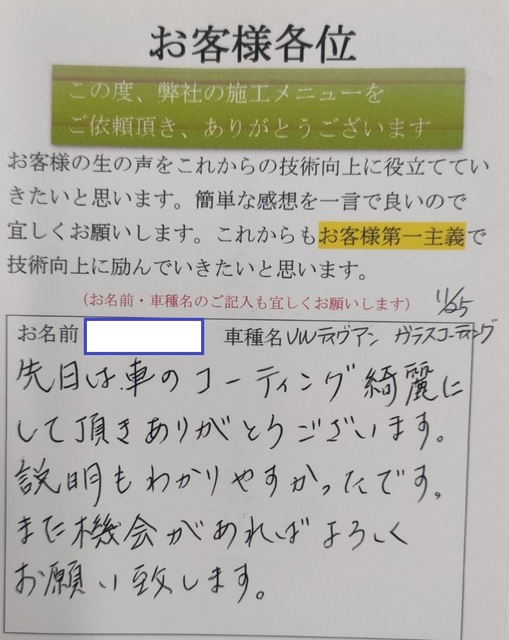 お客様各位
この度、弊社の施工メニューを
ご依頼頂き、ありがとうございます
お客様の生の声をこれからの技術向上に役立ててい
きたいと思います。簡単な感想を一言で良いので
宜しくお願いします。これからもお客様第一主義で
技術向上に励んでいきたいと思います。
(お名前・車種名のご記入も宜しくお願いします) 1/25
お名前 車種名 VWティグアン ガラスコーティング
先日は車のコーティング綺麗に
して頂きありがとうございます。
説明もわかりやすかったです。
また機会があればよろしく
お願い致します。